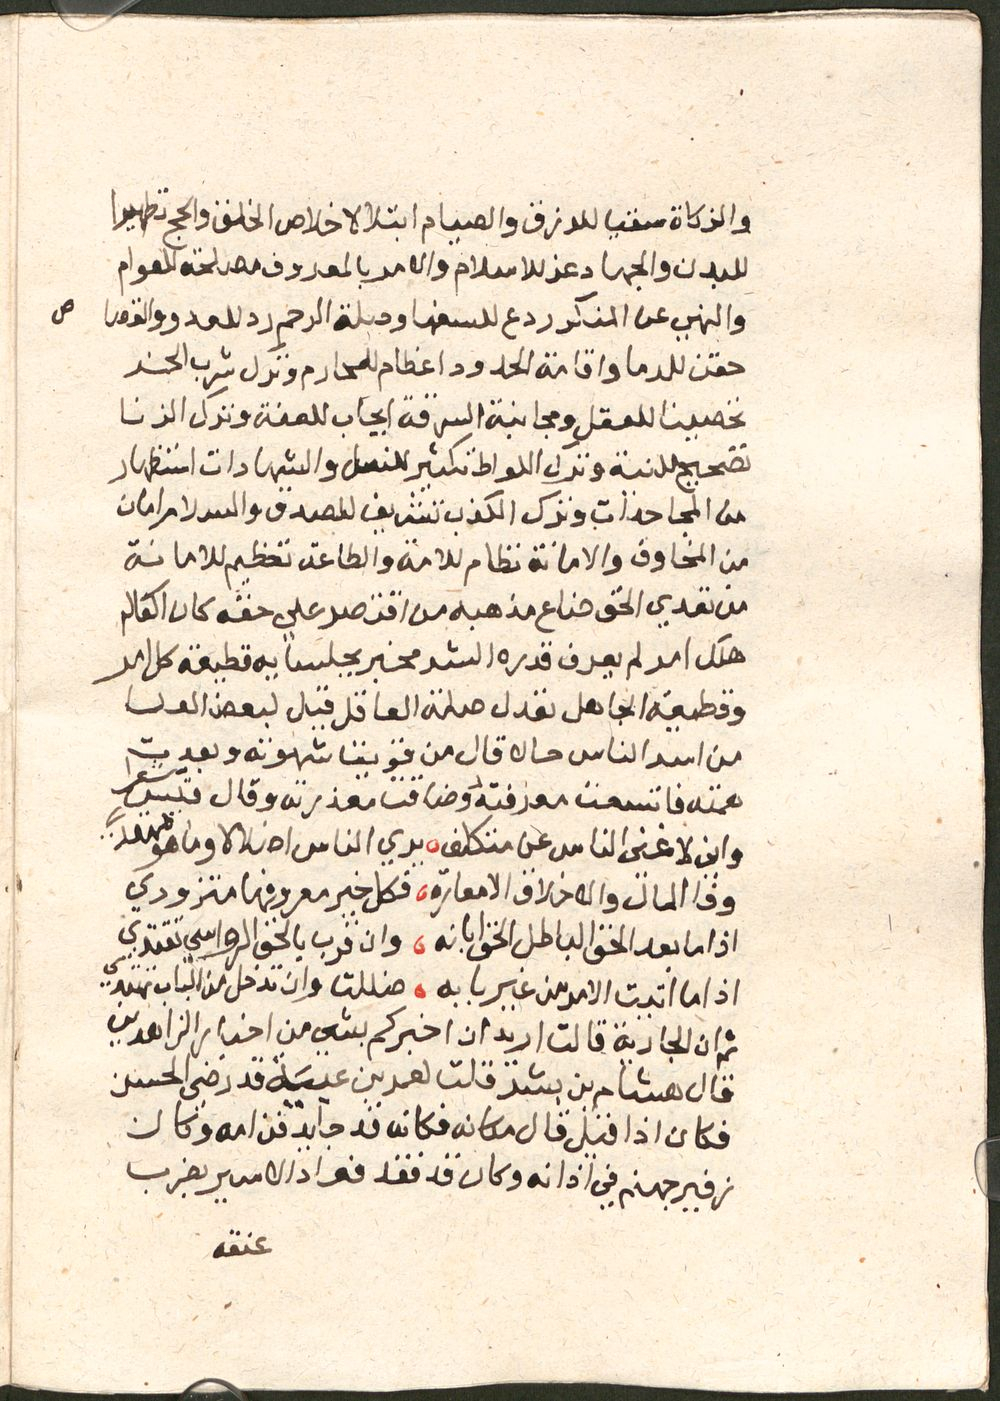 والزكاة سببا للرزق والصيام ابتلا لاخلاص الخلق والحج تطهيرا
للبدن والجهاد عز للاسلام والامر بالمعروف مصلحة للعوام
والنهي عن المنكر ردع للسفها وصلة الرحم رد للعدو والقصا
ص
حقن للدما واقامة الحدود اعظام للمحارم وترك شرب الخمر
تحصينا للعقل ومجانبة السرقة ايجاب للعفة وترك الزنا
تصحيح للنية وترك اللواط تكثير للنسل والشهادات استظهار
من المجاحدات وترك الكذب تشريف للصدق والسلام امان
من المخاوف والامانة نظام للامة والطاعة تعظيم للامانة
من تعدي الحق ضاع مذهبه من اقتصر علي حقه كان اكفاله
هلك امر لم يعرف قدره
وقطيعة الجاهل تعدل صلة العاقل قيل لبعض العلما
من اسد الناس حالا قال من قويت شهوته وبعدت
همته فاتسعت معرفته وضاقت معذرته وقال قيس
شعرا
واني لاغني الناس عن متكلف يري الناس اضلالا وما هو مهتدي
وما المال والاخلاق الا معارة فكل خير معروفها متزودي
اذا ما بعد الحق الباطل الحق ابانه وان قرب بالحق الرواسي تقتدي
اذا ما اتيت الامر من غير بابه ضللت وان تدخل من الباب تهتدي
ثم ان الجارية قالت اريد ان اخبركم بشي من اخبار الزاهدين
قال هشام بن بشر قالت لعمر بن عبيد قد رضي الحسن
فكان اذا قيل قال مكانه فكانه قد جا يدفن امه وكان
زفير جهنم في اذانه وكان قد فقد فعو اذا الامير يضرب
عنقه